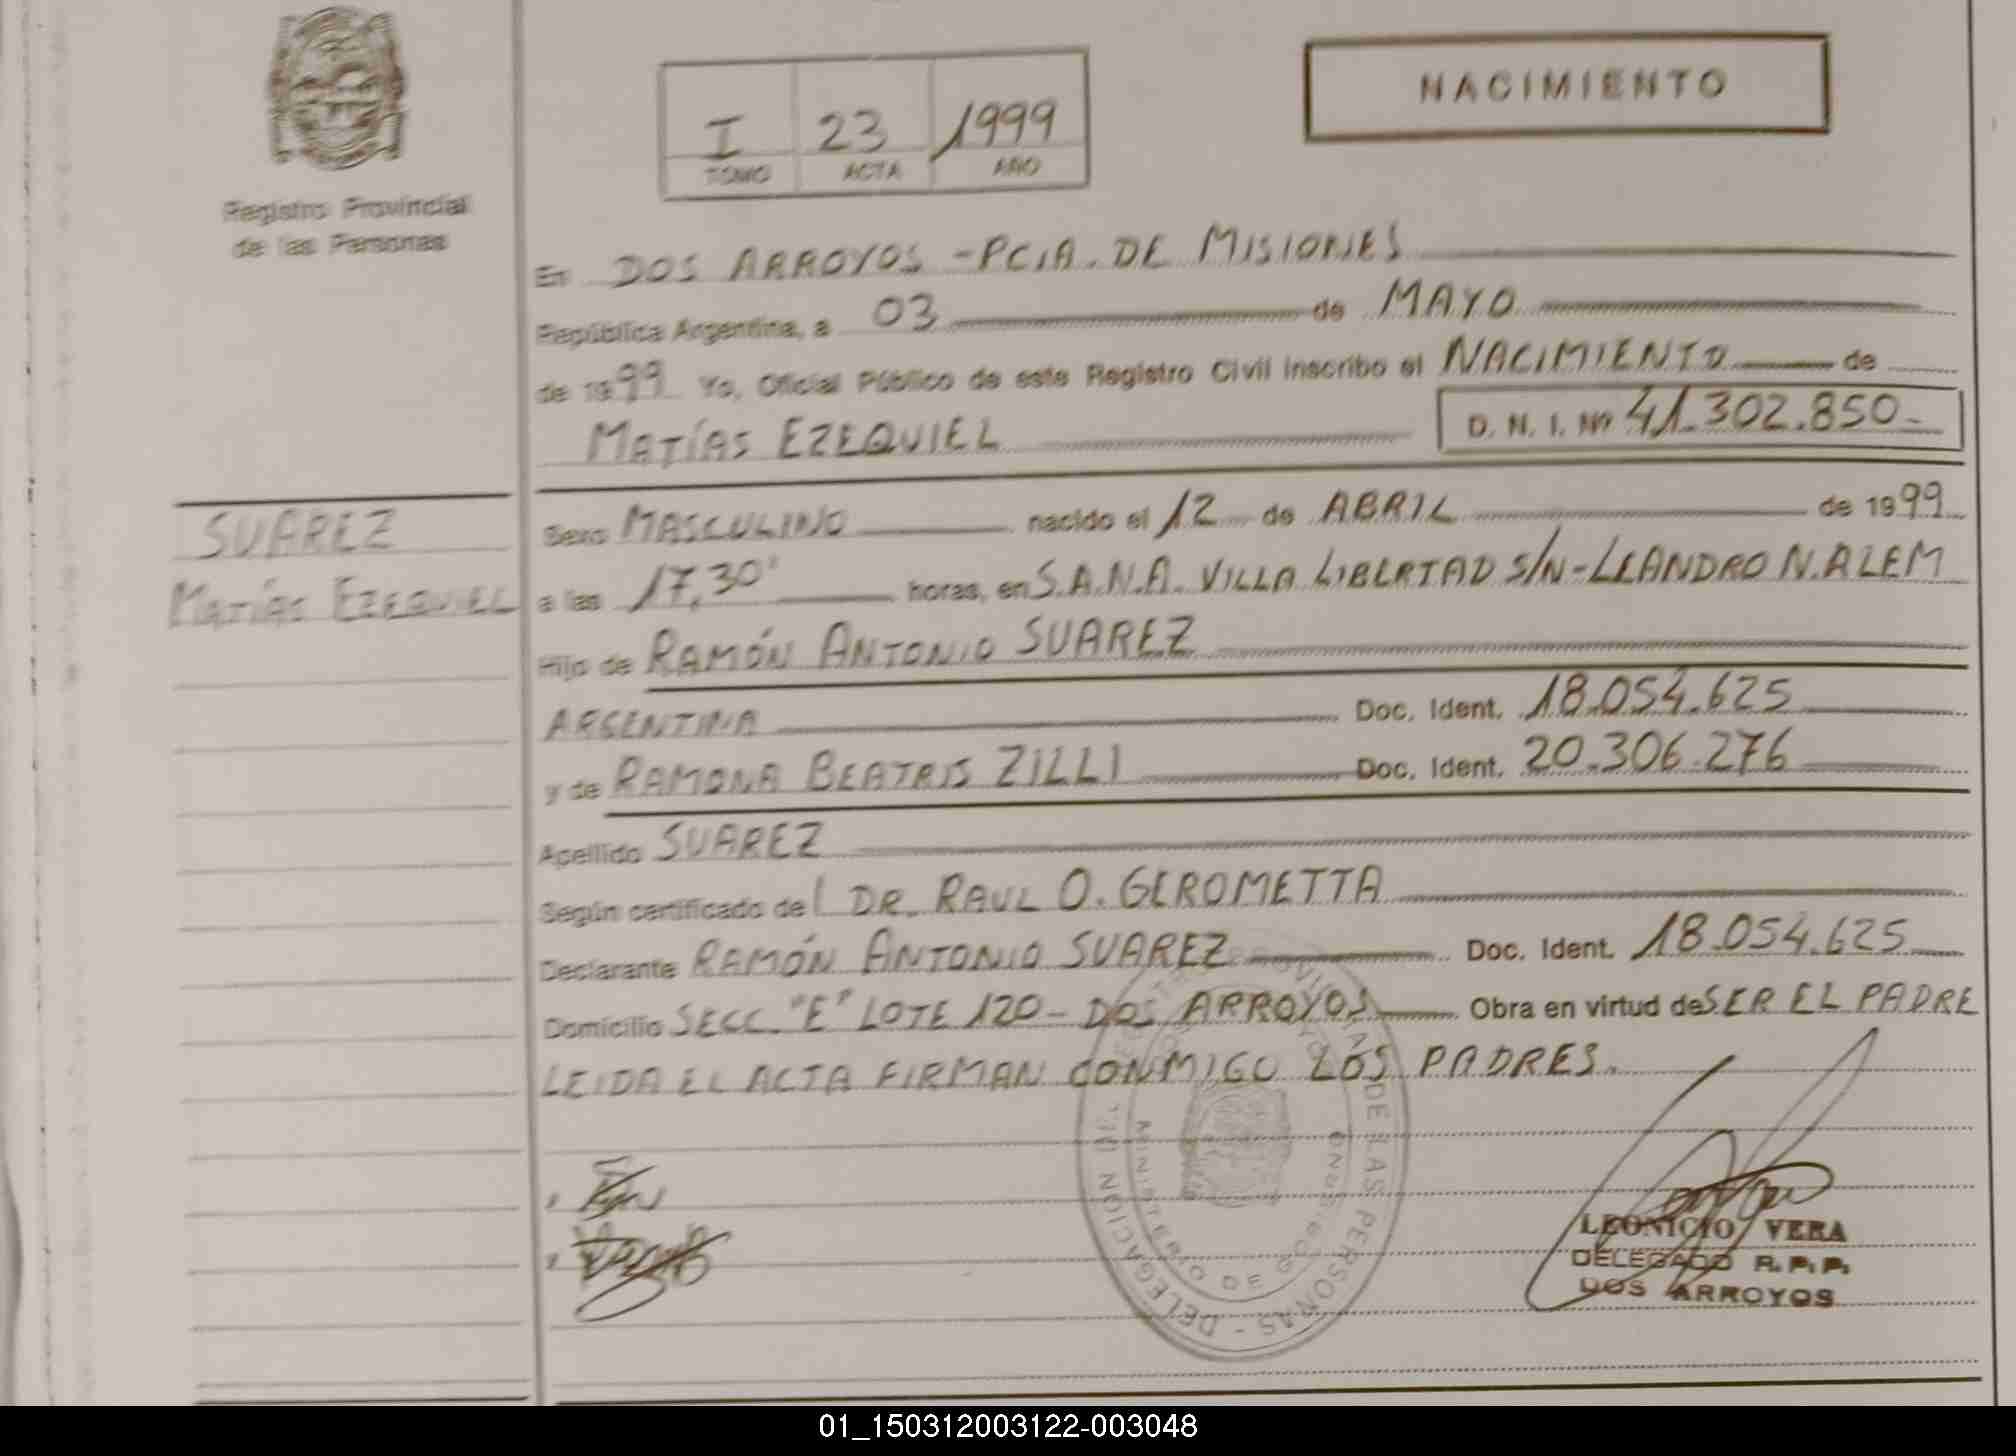 NACIMIENTO
I 23 1999
TOMO ACTA AÑO
Registro Provincial
de las Personas
En DOS ARROYOS - PCIA. DE MISIONES
República Argentina, a 03 de MAYO
de 1999 Yo, Oficial Público de este Registro Civil inscribo el NACIMIENTO de
MATÍAS EZEQUIEL D. N. I. Nº 41.302.850-
SUAREZ
MATÍAS EZEQUIEL
Sexo MASCULINO nacido el 12 de ABRIL de 1999
a las 17,30' horas, en S.A.N.A. VILLA LIBERTAD S/N-LEANDRO N. ALEM
Hijo de RAMÓN ANTONIO SUAREZ
ARGENTINA Doc. Ident. 18.054.625
y de RAMONA BEATRIS ZILLI Doc. Ident. 20.306.276
Apellido SUAREZ
Según certificado del DR. RAUL O. GEROMETTA
Declarante RAMÓN ANTONIO SUAREZ Doc. Ident. 18.054.625
Domicilio SECC. "E" LOTE 120 - DOS ARROYOS Obra en virtud de SER EL PADRE
LEIDA EL ACTA FIRMAN CONMIGO LOS PADRES.
DE LAS PERSONAS - DELEGACION
MINISTERIO DE GOBIERNO
LEONICIO VERA
DELEGADO R.P.P.
DOS ARROYOS
01_150312003122-003048